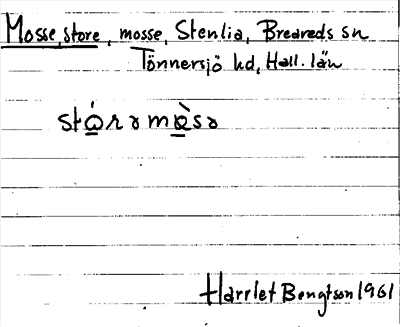 Mosse, store, mosse, Stenlia, Breareds sn
Tönnersjö hd, Hall. län
stώ̲rəmɵ̲̀sə
Harriet Bengtson 1961